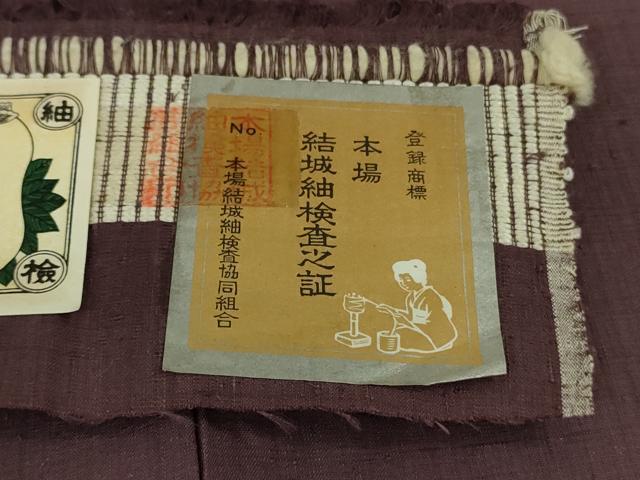 登録商標
本場
結城紬検査之証
No.
本場結城紬検査協同組合
紬
検